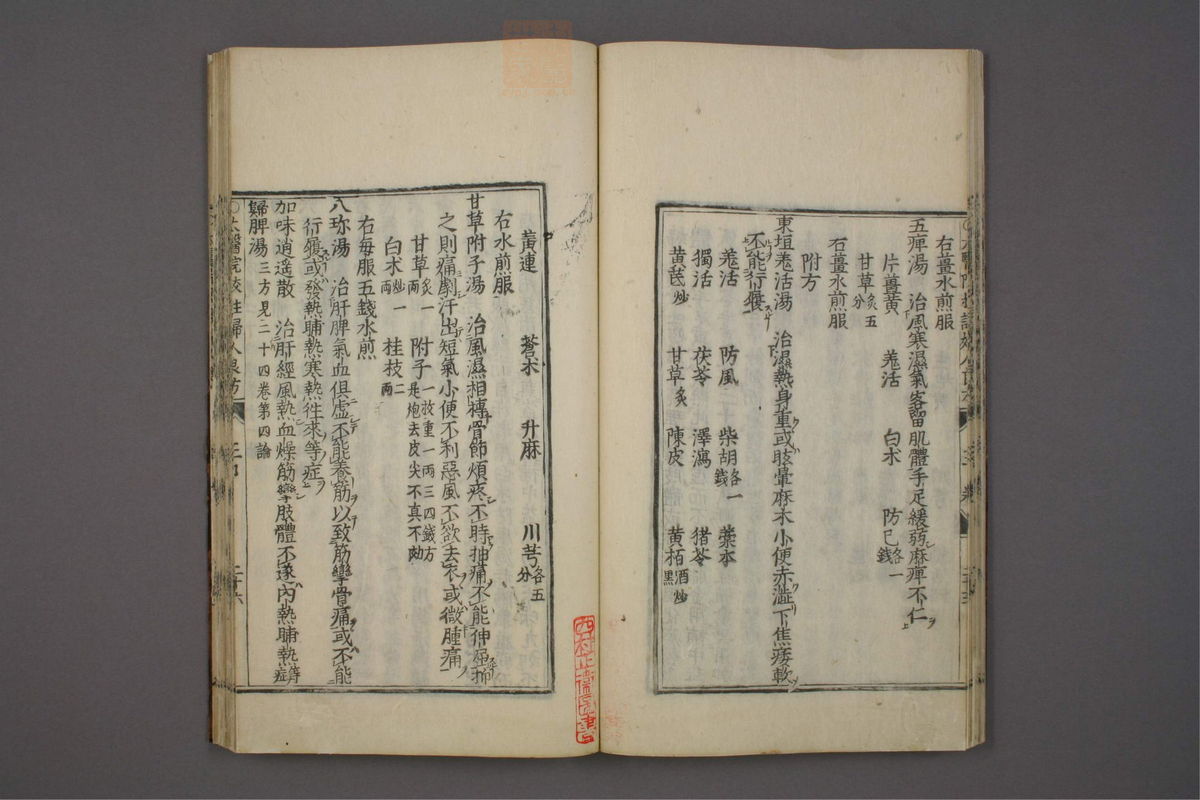 右薑水煎服
五痺湯　治風寒濕氣客留肌體手足緩弱麻痺不仁
片薑黃　羗活　白朮　防已各一錢
甘草炙五分
右薑水煎服
附方
東垣羗活湯　治濕熱身重或眩暈麻木小便赤澁下焦痿軟
不能行履
羗活　防風　柴胡各一錢　藁本
獨活　茯苓　澤瀉　猪苓
黄芪炒　甘草炙　陳皮　黄栢酒炒黒
黃連　蒼朮　升麻　川芎各五分
右水煎服
甘草附子湯　治風濕相摶骨節煩疼不時抽痛不能伸屈抑
之則痛劇汗出短氣小便不利惡風不欲去衣或微腫痛
甘草炙一兩　附子一枚重一兩三四錢方是炮去皮尖不真不効
白朮炒一兩　桂枝二兩
右毎服五錢水煎
八珎湯　治肝脾氣血俱虛不能養筋以致筋攣骨痛或不能
行履或發熱晡熱寒熱徃來等症
加味逍遥散　治肝經風熱血燥筋攣肢體不遂內熱晡熱等症
歸脾湯三方見二十四卷第四論
○太醫院校註婦人良方